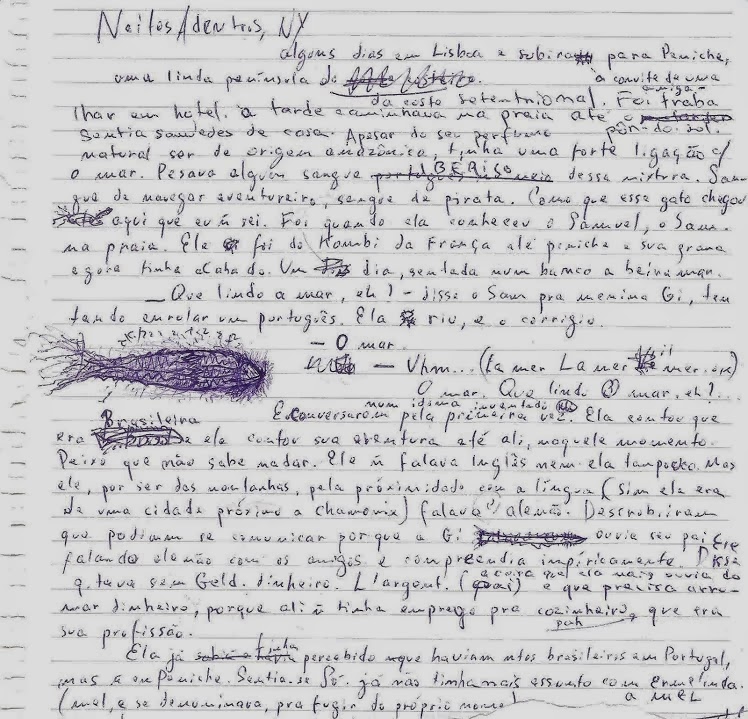 Noites Adentros, NY
alguns dias em Lisboa e subira para Peniche,
uma linda península da
da costa setentrional. Foi traba
à convite de uma amiga
lhar em hotel. à tarde caminhava na praia até o
pôr-do-sol.
Sentia saudades de casa. Apesar do seu perfume
natural ser de origem amazônica, tinha uma forte ligação c/
o mar. Pesava algum sangue IBÉRICO dessa mistura. San
gue de navegar aventureiro, sangue de pirata. Como que esse gato chegou
aqui que eu ñ sei. Foi quando ela conheceu o Samuel, o Sam.
na praia. Ele foi de Kombi da França até peniche e sua grana
agora tinha acabado. Um dia, sentada num banco a beira mar.
— Que lindo a mar, eh? - disse o Sam pra menina Gi, ten
tando enrolar um português. Ela riu, e o corrigiu.
— O mar.
— Uhm... (La mer La mer
O mar. Que lindo O mar, eh?...
num idioma inventado
E conversaram pela primeira vez. Ela contou que
era Brasileira e ele contou sua aventura até ali, naquele momento.
Peixe que não sabe nadar. Ele ñ falava Inglês nem ela tampouco. Mas
ele, por ser das montanhas, pela próximidade com a língua (Sim ele era
de uma cidade próximo a chamonix) falava alemão. Descrobriram
que podiam se comunicar porque a Gi ouvia seu pai
falando alemão com os amigos e compreendia impíricamente. Ele Disse
q. tava sem Geld. dinheiro. L'argent. (a coisa que ela mais ouvia do pai) e que precisa arru
mar dinheiro, porque ali ñ tinha emprego pra cozinheiro, que era
sua profissão.
Ela já tinha percebido que haviam mtos brasileiros em Portugal,
mas ñ em Peniche. Sentia-se Só. já não tinha mais assunto com Ermelinda.
a MEL
(mel, q se denominava, pra fugir do próprio nome!